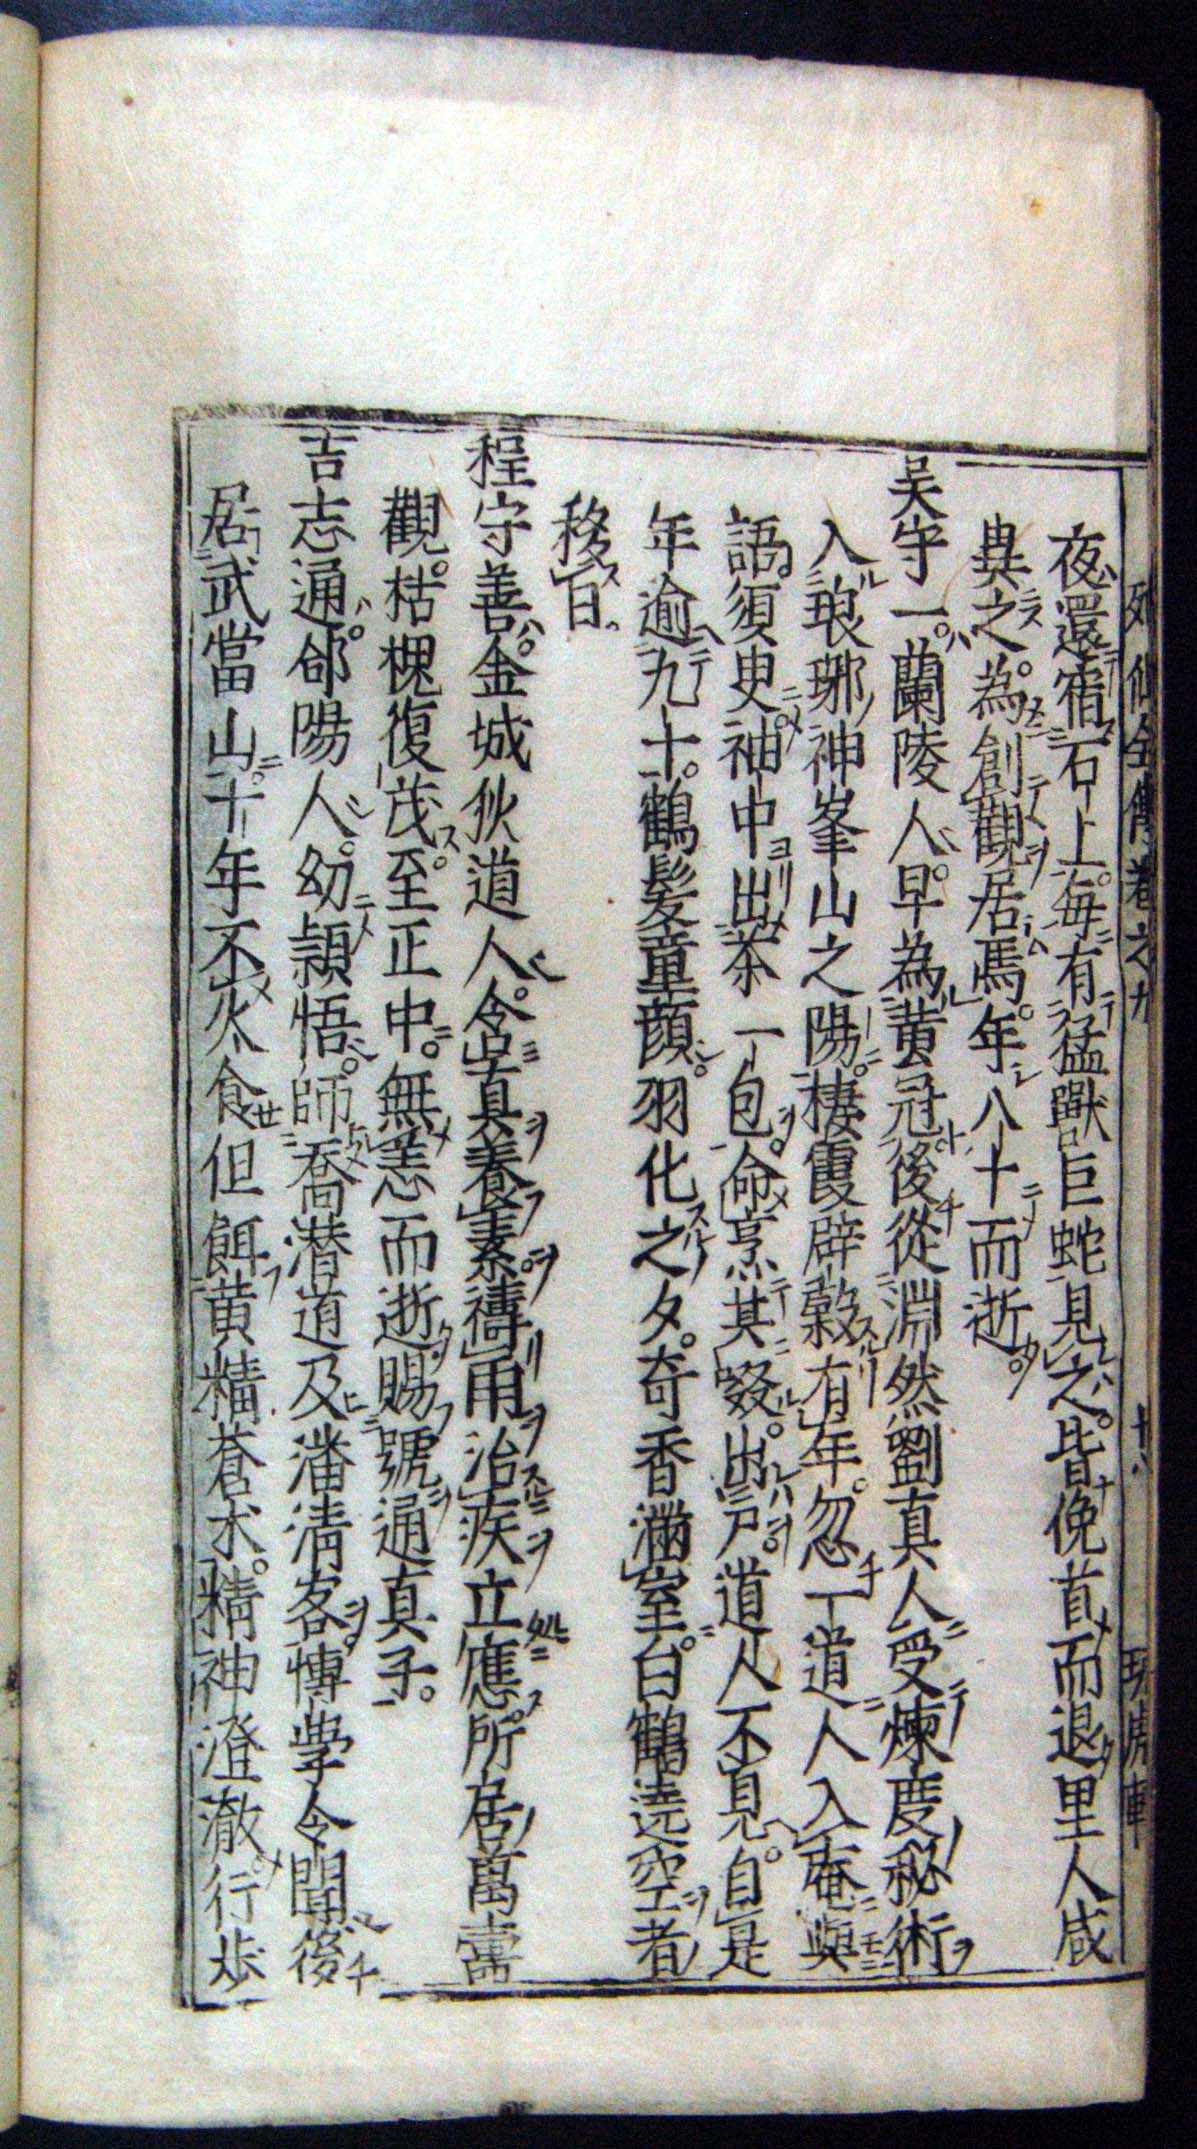 列仙全傳卷之九 十八 玩虎軒
夜還宿石上毎有猛獸巨蛇見之皆俛首而退里人咸
異之為創觀居焉年八十而逝
吴守一蘭陵人早為黄冠後從淵然劉真人受煉度秘術
入琅琊神峯山之陽棲霞辟穀有年忽一道人入庵與
語須史袖中出茶一包命烹其啜出戸道人不見自是
年逾九十鶴髪童顔羽化之夕奇香滿室白鶴遶空者
移日
程守善金城狄道人含真養素禱雨治疾立應所居萬壽
觀枯槐復茂至正中無恙而逝賜號通真子
吉志通郃陽人幼頴悟師喬潜道及潘清客博學令聞後
居武當山十年不火食但餌黄精蒼朮精神澄澈行歩